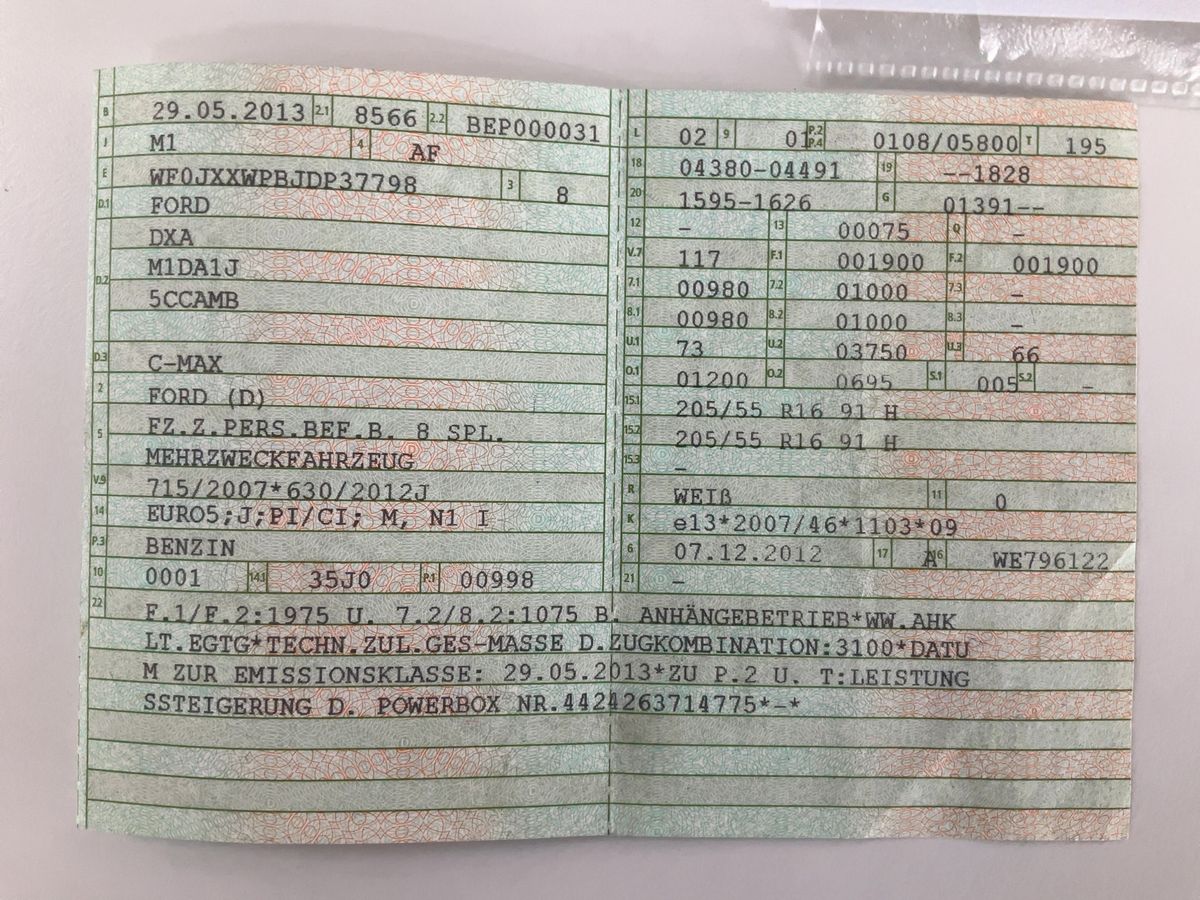 B 29.05.2013 2.1 8566 2.2 BEP000031
J M1 4 AF
E WF0JXXWPBJDP37798 3 8
D.1 FORD
DXA
D.2 M1DA1J
5CCAMB
D.3 C-MAX
2 FORD (D)
5 FZ.Z.PERS.BEF.B. 8 SPL.
MEHRZWECKFAHRZEUG
V.9 715/2007*630/2012J
14 EURO5;J;PI/CI; M, N1 I
P.3 BENZIN
10 0001 14.1 35J0 P.1 00998
L 02 9 01 P.2 P.4 0108/05800 T 195
18 04380-04491 19 --1828
20 1595-1626 G 01391--
12 - 13 00075 Q -
V.7 117 F.1 001900 F.2 001900
7.1 00980 7.2 01000 7.3 -
8.1 00980 8.2 01000 8.3 -
U.1 73 U.2 03750 U.3 66
O.1 01200 O.2 0695 S.1 005 S.2 -
15.1 205/55 R16 91 H
15.2 205/55 R16 91 H
15.3 -
R WEIß 11 0
K e13*2007/46*1103*09
6 07.12.2012 17 A 16 WE796122
21 -
22 F.1/F.2:1975 U. 7.2/8.2:1075 B. ANHÄNGEBETRIEB*WW.AHK
LT.EGTG*TECHN.ZUL.GES-MASSE D.ZUGKOMBINATION:3100*DATU
M ZUR EMISSIONSKLASSE: 29.05.2013*ZU P.2 U. T:LEISTUNG
SSTEIGERUNG D. POWERBOX NR.4424263714775*-*